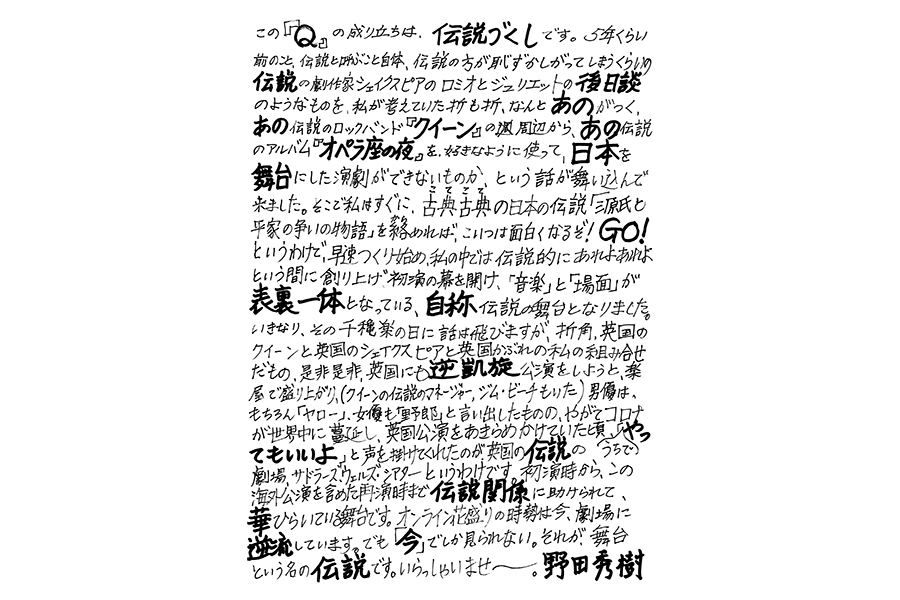 この『Q』の成り立ちは、伝説づくしです。5年くらい
前のこと、伝説と呼ぶこと自体、伝説の方が恥ずかしがってしまうくらいの
伝説の劇作家シェイクスピアのロミオとジュリエットの後日談
のようなものを、私が考えていた折も折、なんとあのがつく、
あの伝説のロックバンド『クイーン』の周辺から、あの伝説
のアルバム『オペラ座の夜』を、好きなように使って、日本を
舞台にした演劇ができないものか、という話が舞い込んで
来ました。そこで私はすぐに、古典古典の日本の伝説「源氏と
こてこて
平家の争いの物語」を絡めれば、こいつは面白くなるぞ!GO!
から
というわけで、早速つくり始め、私の中では伝説的にあれよあれよ
という間に創り上げ、初演の幕を開け、「音楽」と「場面」が
表裏一体となっている、自称伝説の舞台となりました。
いきなり、その千穐楽の日に話は飛びますが、折角、英国の
クイーンと英国のシェイクスピアと英国かぶれの私の組み合せ
だもの、是非是非、英国にも逆凱旋公演をしようと、楽
屋で盛り上がり、(クイーンの伝説のマネージャー、ジム・ビーチもいた)男優は、
もちろん「ヤロー」、女優も「野郎」と言い出したものの、やがてコロナ
が世界中に蔓延し、英国公演をあきらめかけていた頃、「うちでやっ
てもいいよ」と声を掛けてくれたのが、英国の伝説の
劇場、サドラーズウェルズ・シアターというわけです。初演時から、この
海外公演を含めた再演時まで伝説関係に助けられて、
華ひらいている舞台です。オンライン花盛りの時勢は今、劇場に
逆流しています。でも「今」でしか見られない。それが、舞台
という名の伝説です。いらっしゃいませ〜。野田秀樹